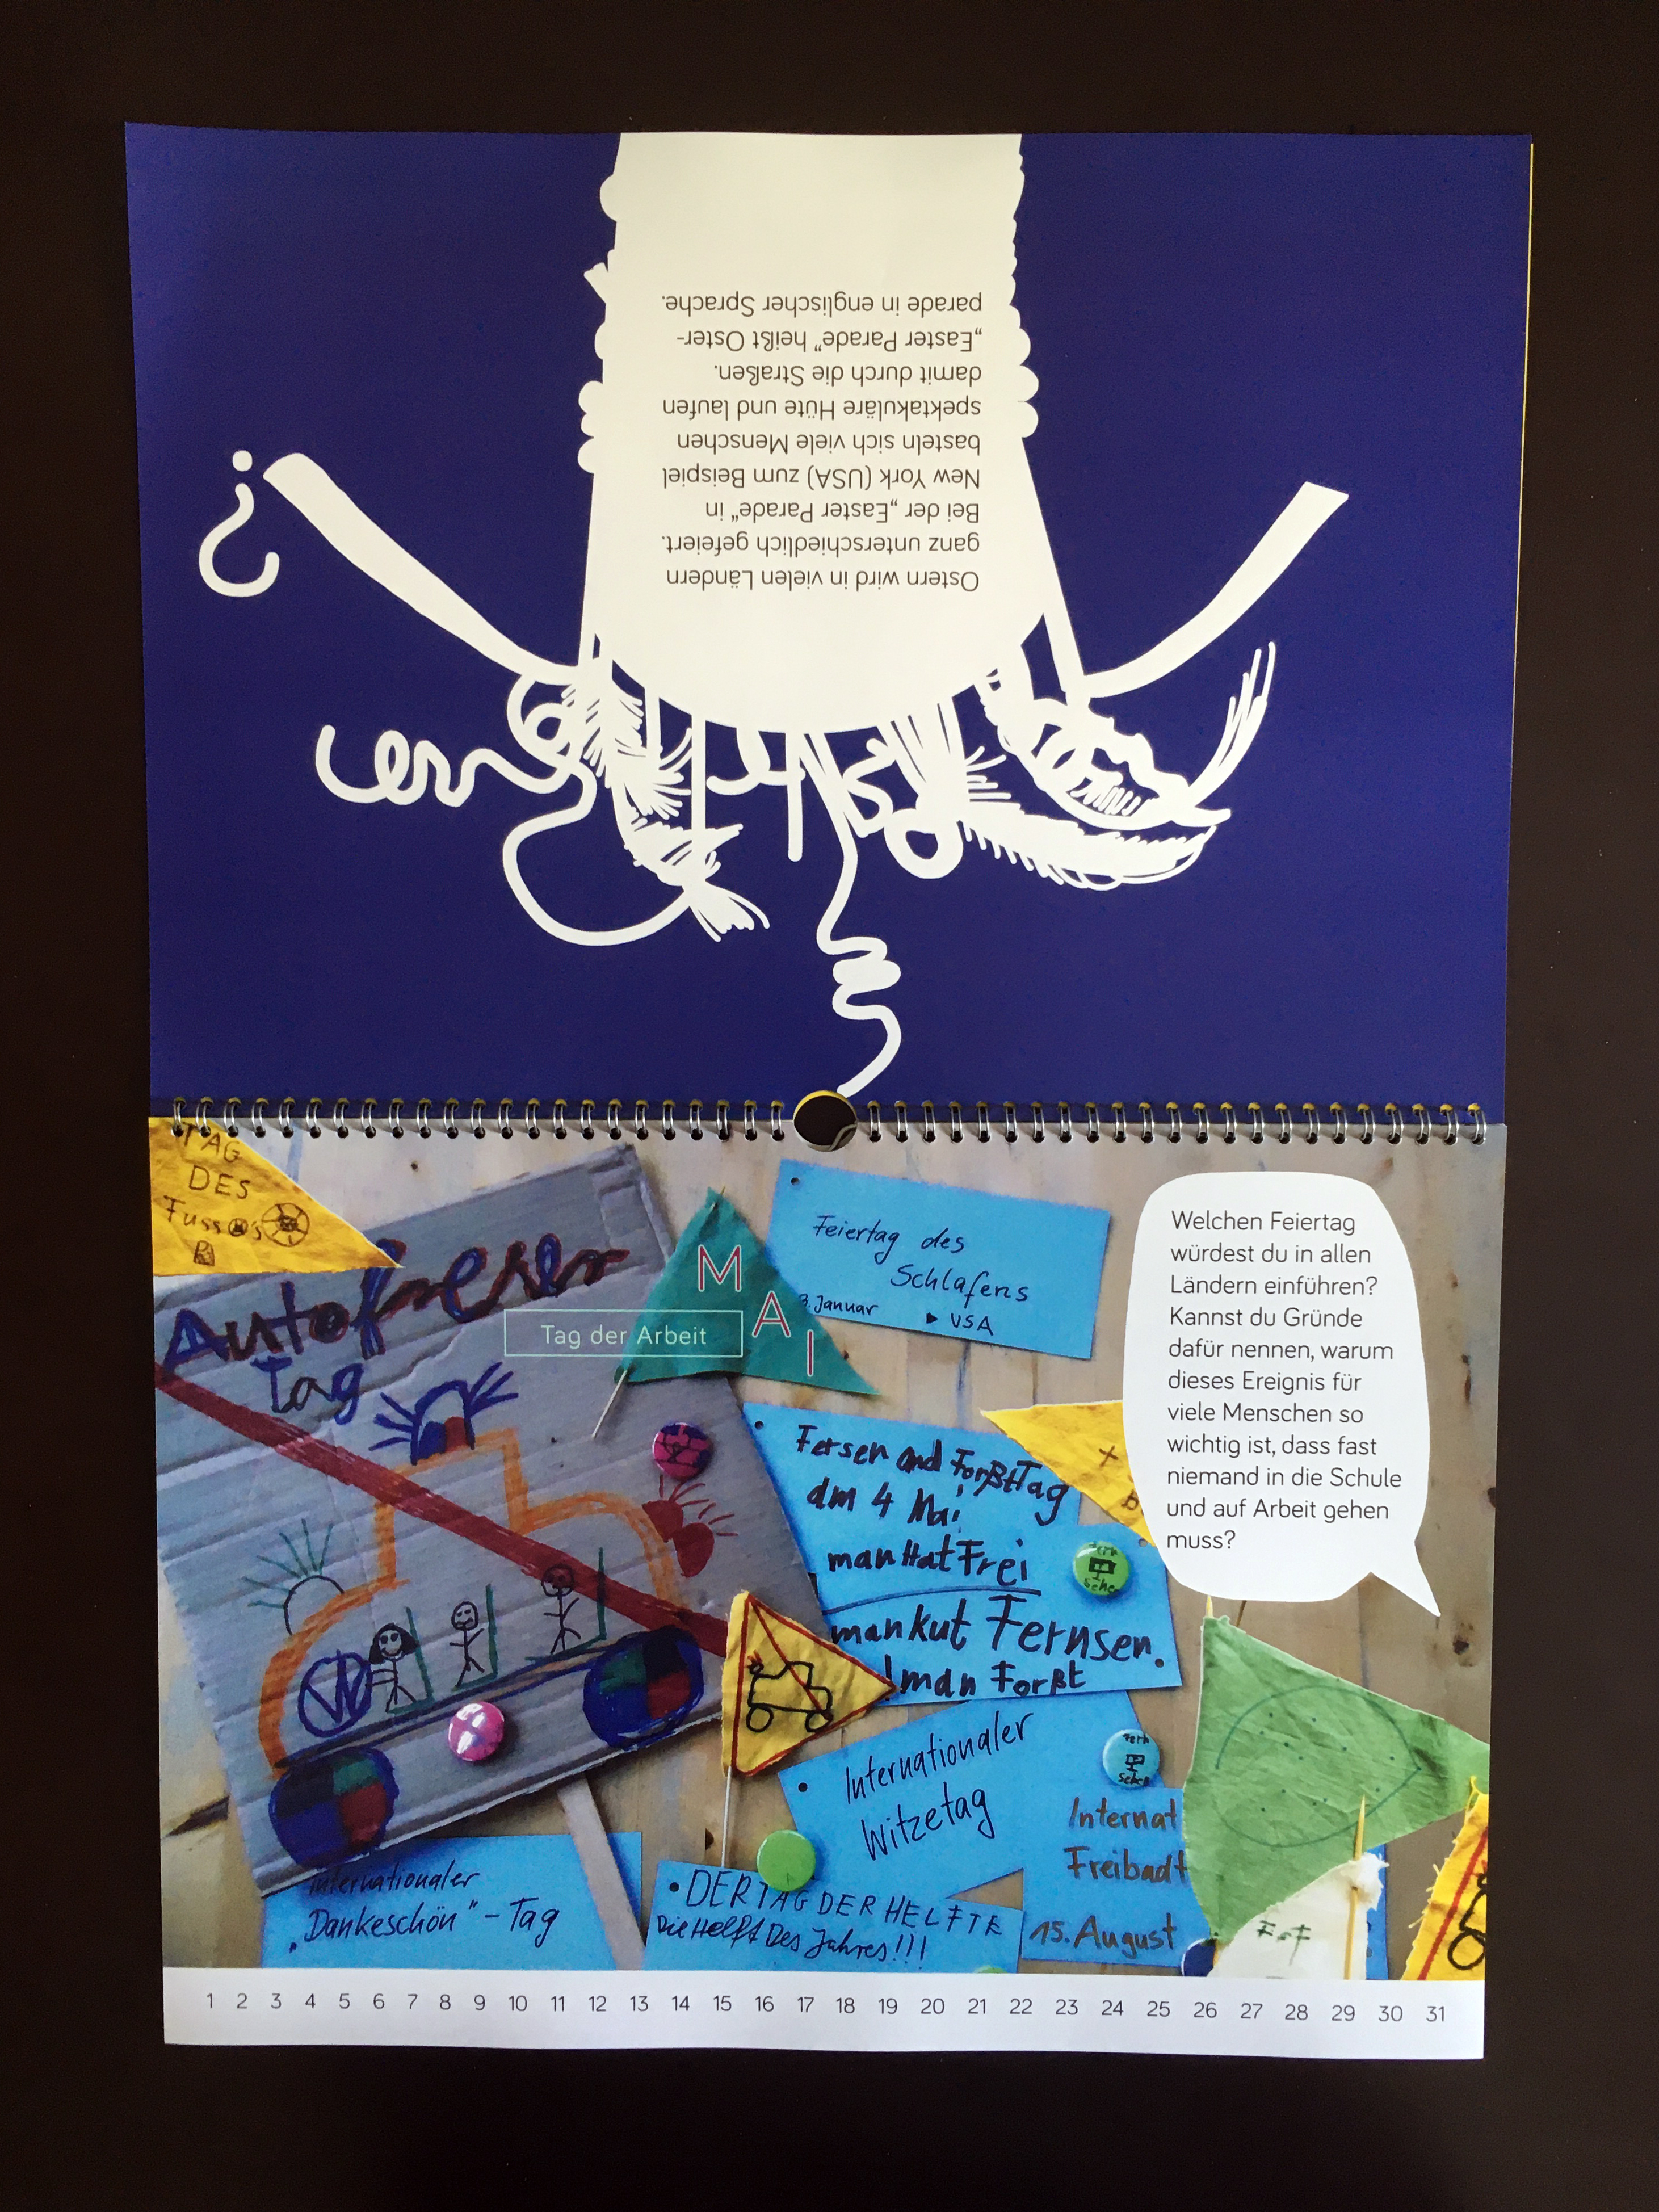 Ostern wird in vielen Ländern
ganz unterschiedlich gefeiert.
Bei der „Easter Parade“ in
New York (USA) zum Beispiel
basteln sich viele Menschen
spektakuläre Hüte und laufen
damit durch die Straßen.
„Easter Parade“ heißt Oster-
parade in englischer Sprache.
?
TAG
DES
Fuss
B
Autofreier
Tag
VW
MAI
Tag der Arbeit
Feiertag des
Schlafens
3. Januar ▸ USA
Welchen Feiertag
würdest du in allen
Ländern einführen?
Kannst du Gründe
dafür nennen, warum
dieses Ereignis für
viele Menschen so
wichtig ist, dass fast
niemand in die Schule
und auf Arbeit gehen
muss?
Fersen and ForßtTag
am 4 Mai
man Hat Frei
man kut Fernsen.
! man Forßt
Fern
sehe
Internationaler
Witzetag
Fern
sehen
Internat
Freibadt
15. August
Internationaler
„Dankeschön“ – Tag
• DER TAG DER HELFTE
Die Helft Des Jahres!!!
1 2 3 4 5 6 7 8 9 10 11 12 13 14 15 16 17 18 19 20 21 22 23 24 25 26 27 28 29 30 31